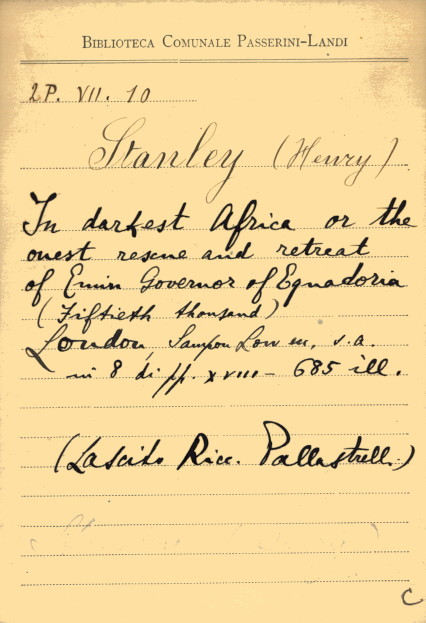 BIBLIOTECA COMUNALE PASSERINI-LANDI
2P. VII. 10
Stanley (Henry)
In darkest Africa or the
ouest rescue and retreat
of Emin Governor of Equadoria
(Fiftieth thousand)
London, Sampon Low, s.a.
in 8 di pp. XVIII - 685 ill.
(Lascito Ricc. Pallastrelli)
C